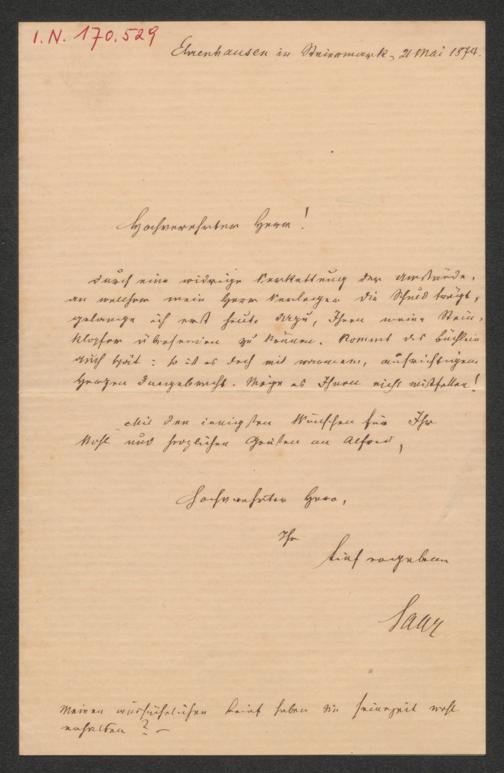 I.N. 170.529
Ehrenhausen in Steiermark, 21 Mai 1874.
Hochverehrter Herr!
Durch eine widrige Verkettung der Umstände,
an welcher mein Herr Verleger die Schuld trägt,
gelange ich erst heute dazu, Ihnen meine Stein-
klopfer übersenden zu können. Kommt das Büchlein
auch spät: so ist es doch mit warmem, aufrichtigem
Herzen dargebracht. Möge es Ihnen nicht mißfallen!
Mit den innigsten Wünschen für Ihr
Wohl und herzlichen Grüßen an Alfred,
Hochverehrter Herr,
Ihr
tief ergebener
Saar
Meinen ausführlichen Brief haben Sie seinerzeit wohl
erhalten? –